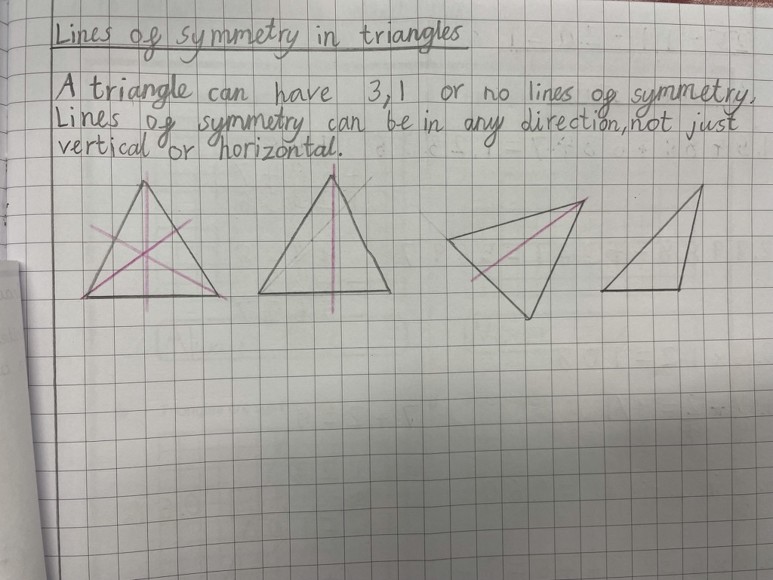 Lines of symmetry in triangles
A triangle can have 3,1 or no lines of symmetry.
Lines of symmetry can be in any direction, not just
vertical or horizontal.